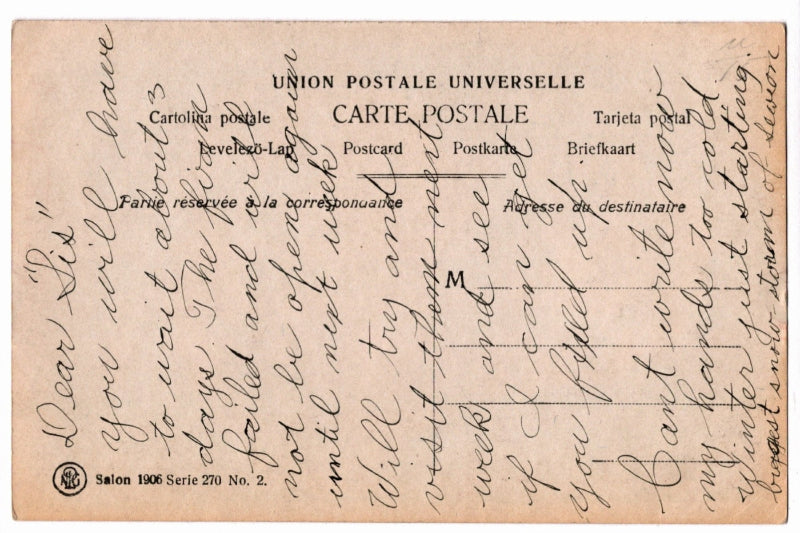 UNION POSTALE UNIVERSELLE
CARTE POSTALE
Cartolina postale
Tarjeta postal
Levelező-Lap
Postcard
Postkarte
Briefkaart
Partie réservée à la correspondance
Adresse du destinataire
M
Salon 1906 Serie 270 No. 2.
Dear "Sis"
you will have
to wait about 3
days The firm
failed and will
not be open again
until next week
Will try and
visit them next
week and see
if I can get
you fixed up
Cant write now
my hands too cold.
Winter just starting.
biggest snow storm of